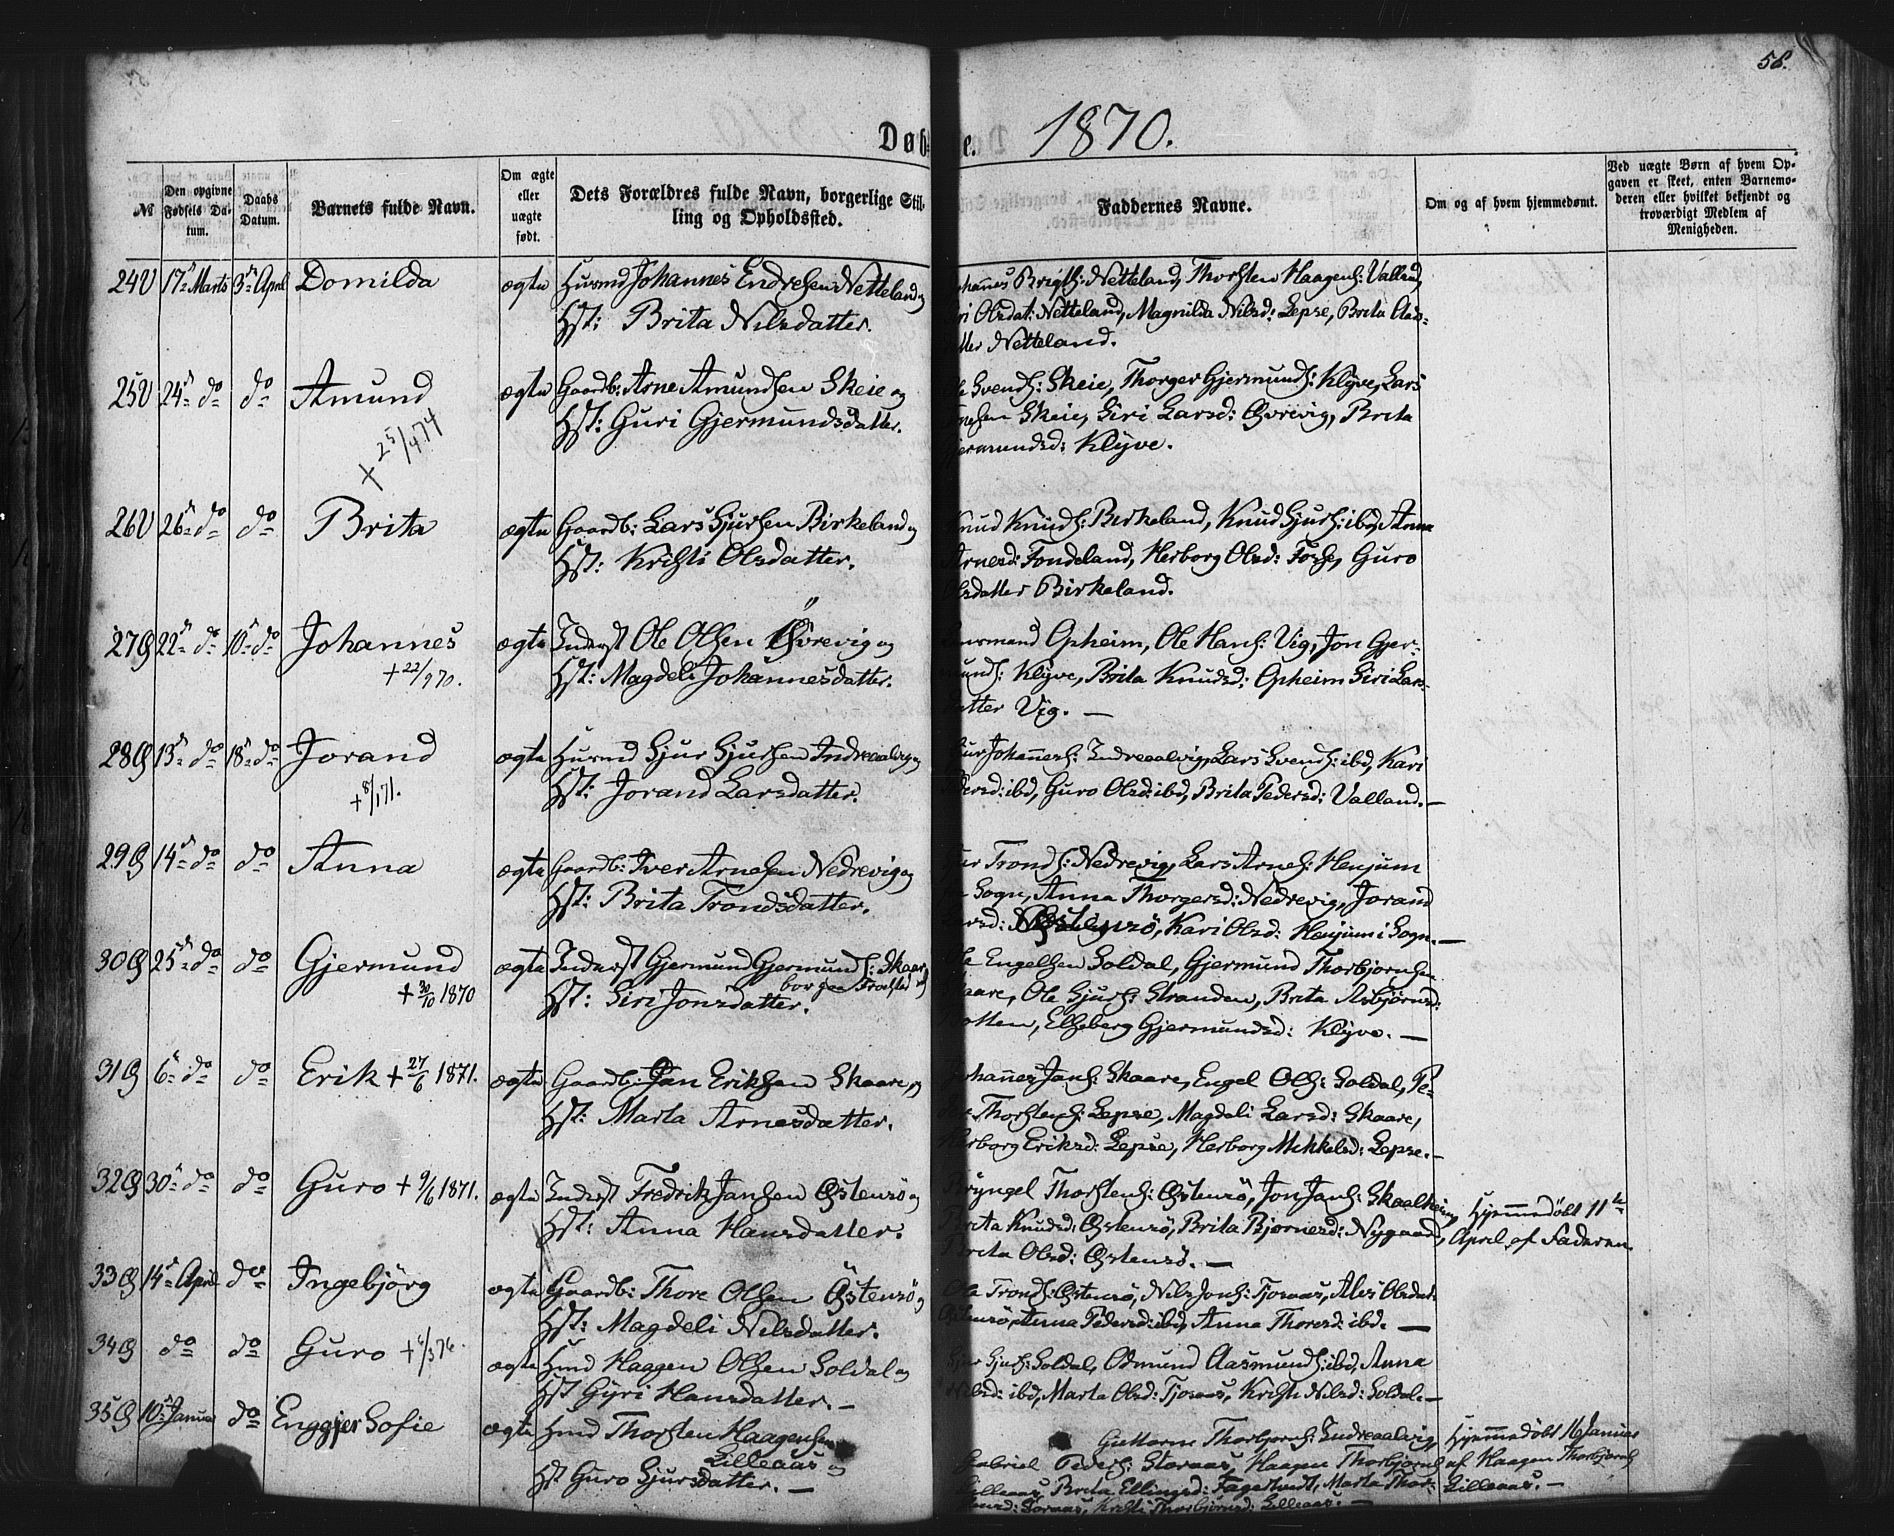 58.
Døbte. 1870.
№
Den opgivne Fødsels Datum.
Daabs Datum.
Barnets fulde Navn.
Om ægte eller uægte født.
Dets Forældres fulde Navn, borgerlige Stilling og Opholdssted.
Faddernes Navne.
Om og af hvem hjemmedømt.
Ved uægte Børn af hvem Opgaven er skeet, enten Barnemoderen eller hvilket bekjendt og troværdigt Medlem af Menigheden.
24 17de Marts 3die April Domilda ægte Husmd Johannes Endresen Netteland og
Hst: Brita Nilsdatter.
Thorsten Haagens: Valland,
Olsdat: Netteland, Magnilda Nilsd: Lepse, Brita
Netteland.
25 24de do do Amund ægte Gaardb: Arne Amundsen Skeie og
+ 25/4 74
Hst: Guri Gjermundsdatter.
Svends: Skeie, Thorger Gjermunds: Klyve, Lars
Skeie, Siri Larsd: Øvrevig, Brita
Klyve.
26 26de do do Brita ægte Gaardb: Lars Sjursen Birkeland og
Hst: Kristi Olsdatter.
Knud Knuds: Birkeland, Knud Sjurs: ibd, Anna
Arnesd: Fondeland, Herborg Olsd: Fosse, Guro
Olsdatter Birkeland.
27 22de do 10de do Johannes ægte Inderst Ole Olsen Øvrevig og
+ 22/9 70.
Hst: Magdeli Johannesdatter.
Opheim, Ole Hans: Vig, Jon Gjer-
munds: Klyve, Brita Knudsd: Opheim Siri Lars-
datter Vig. —
28 13de do 18de do Jorand ægte Husmd Sjur Sjursen Indreaalvig og
+ 8/1 71.
Hst: Jorand Larsdatter.
Sjur Johannes: Indreaalvig, Lars Svends: ibd, Kari
Pedersd: ibd, Guro Olsd: ibd, Brita Pedersd: Valland. —
29 14de do do Anna ægte Gaardb: Iver Arnesen Nedrevig og
Hst: Brita Trondsdatter.
Tronds: Nedrevig, Lars Arnes: Henjum
Sogn, Anna Thorgersd: Nedrevig, Jorand
Kari Olsd: Henjum i Sogn. —
30 25de do do Gjermund ægte Inderst Gjermund Gjermunds: Skaar
+ 30/10 1870
bor paa
Hst: Siri Jonsdatter.
Ole Engelsen Soldal, Gjermund Thorbjørnsen
Skaare, Ole Sjurs: Stranden, Brita Asbjørnsd:
Elseberg Gjermundsd: Klyve. —
31 6te do do Erik + 27/6 1871. ægte Gaardb: Jan Eriksen Skaare, og
Hst: Marta Arnesdatter.
Johannes Jans: Skaare, Engel Ols: Soldal, Pe-
Thorstens: Lepse, Magdeli Larsd: Skaare,
Herborg Eriksd: Lepse, Herborg Mikkelsd: Lepse. —
32 30te do do Guro + 9/6 1871. ægte Inderst Fredrik Jansen Østensø og
Hst: Anna Hansdatter.
Bryngel Thorstens: Østensø, Jon Jans: Skaalheim,
Brita Knudsd: Østensø, Brita Bjørnesd: Nygaard,
Brita Olsd: Østensø. —
Hjemmedøbt 11te
April af Faderen.
33 14de April do Ingebjörg ægte Gaardb: Thore Olsen Østensø og
Hst: Magdeli Nilsdatter.
Ole Tronds: Østensø, Nils Jons: Tjoraas, Ales Olsdat:
Østensø, Anna Pedersd: ibd, Anna Thoresd: ibd. —
34 do do Guro ægte Hmd Haagen Olsen Soldal og
Hst Gyri Hansdatter. —
Soldal, Odmund Aasmunds: ibd, Anna
Nilsd: ibd, Marta Olsd: Tjoraas, Kristi Nilsd: Soldal. —
35 10de Januar do Enggjer Sofie ægte Hmd Thorsten Haagensen
Lilleaas og
Hst Guro Sjursdatter. —
Guttorm Thorbjørns: Indreaalvig,
Gabriel Peders: Storaas, Haagen Thorbjørns:
Lilleaas, Brita Ellingsd: Fagertvedt, Marta Thor-
Kristi Thorbjørnsd: Lilleaas. —
Hjemmedøbt 16 Januar
af Haagen Thorbjørns:
Lilleaas. —